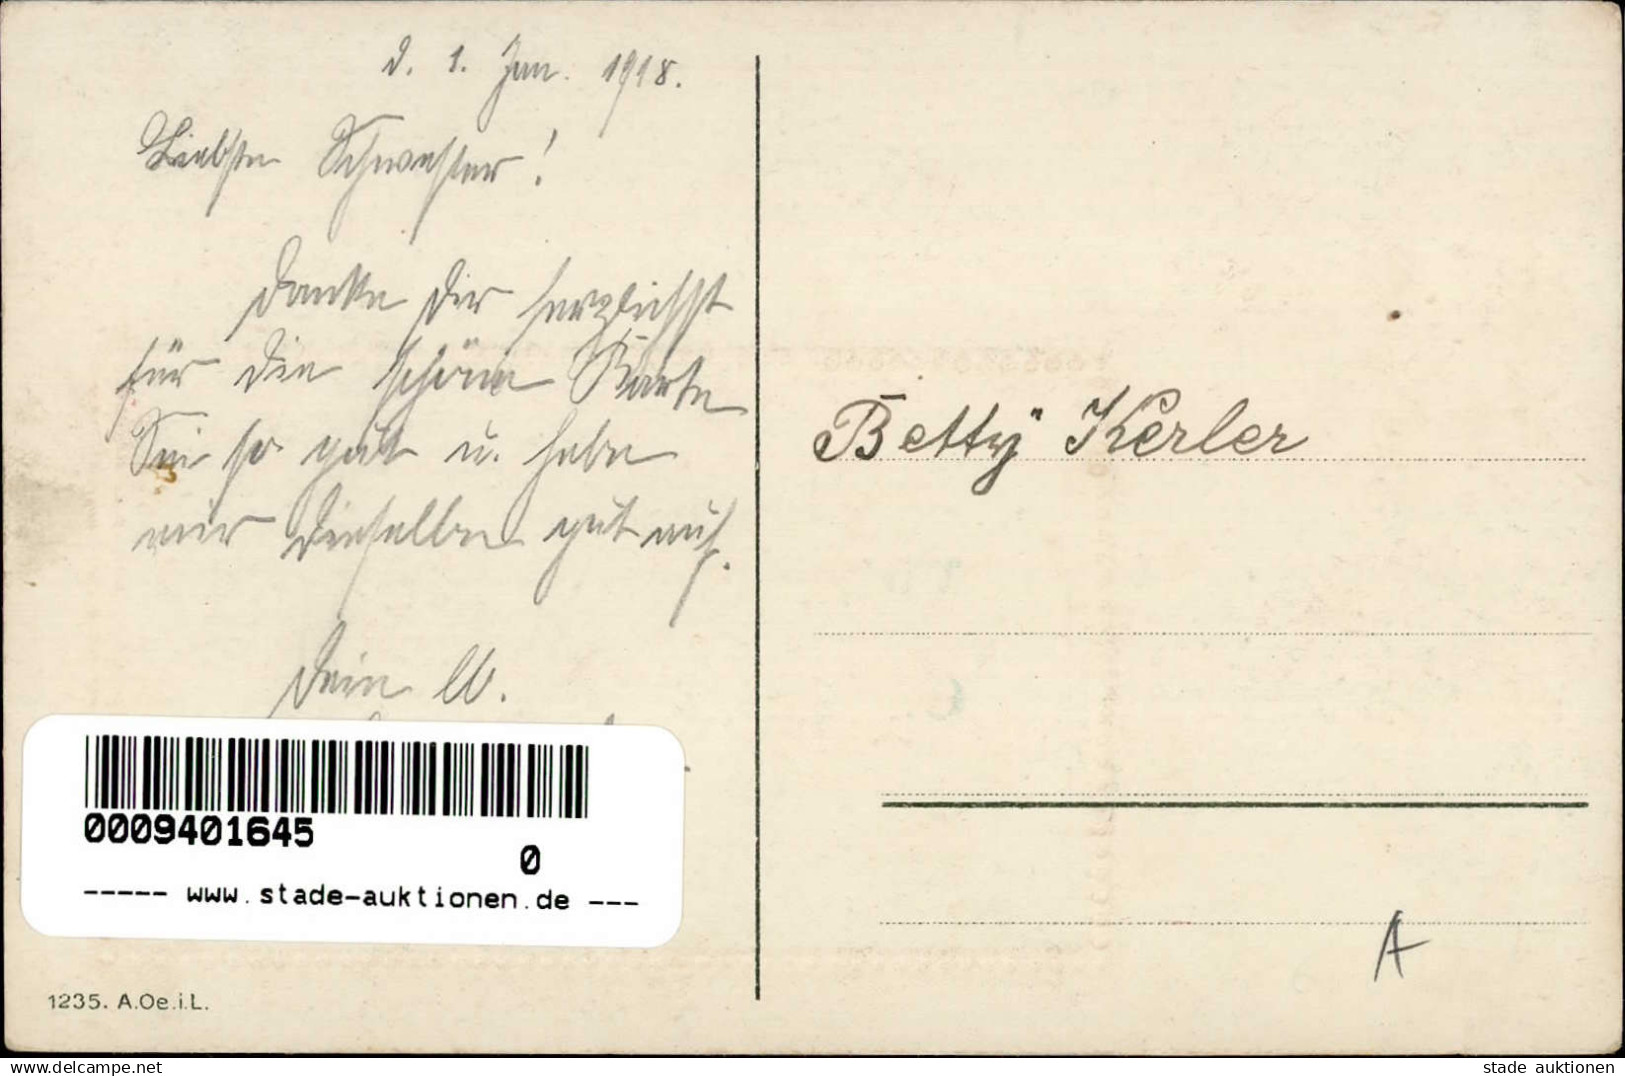 d. 1. Jan. 1918.
Liebste Schwester!
Danke Dir herzlichst
für die schöne Karte
Sei so gut u. hebe
mir dieselbe gut auf.
Dein
Betty Kerler
0009401645
0
----- www.stade-auktionen.de ---
1235. A.Oe.i.L.
A
www.delcampe.net
stade auktionen